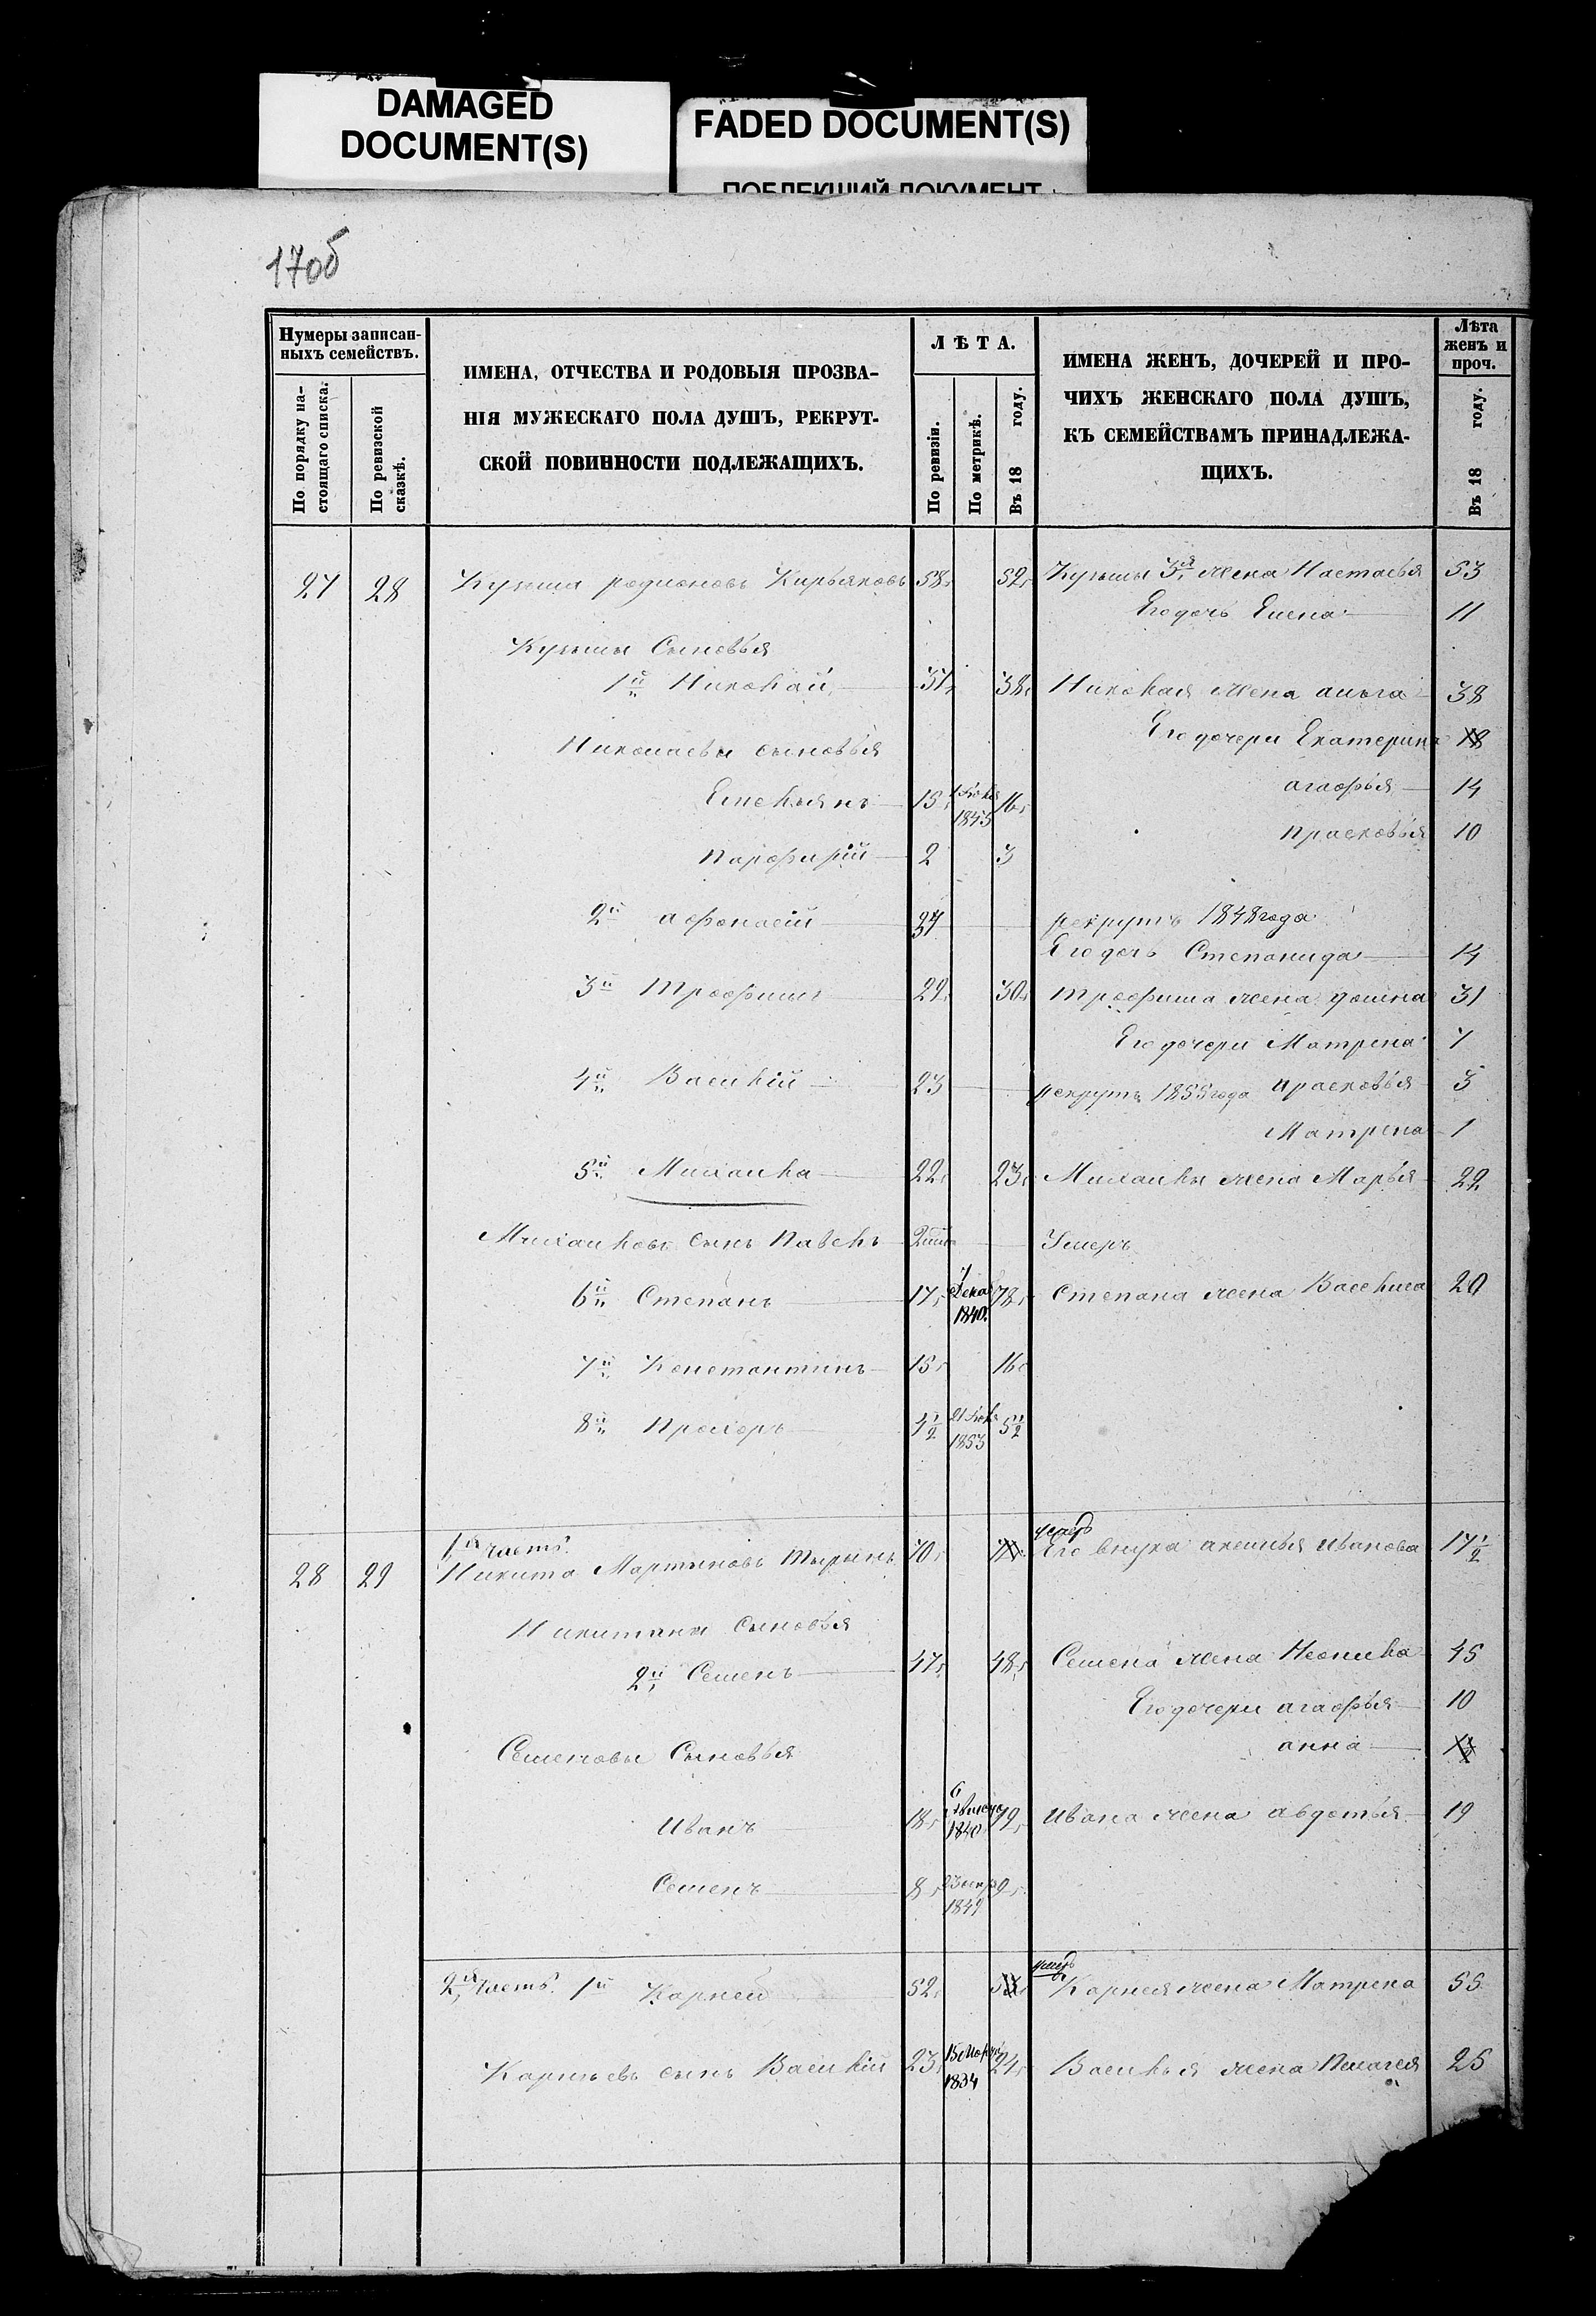 DAMAGED
DOCUMENT(S)
FADED DOCUMENT(S)
ПОБЛЕКШИЙ ДОКУМЕНТ
170б
Нумеры записан-
ныхъ семействъ.
По порядку на-
стоящаго списка.
По ревизской
сказкѣ.
ИМЕНА, ОТЧЕСТВА И РОДОВЫЯ ПРОЗВА-
НІЯ МУЖЕСКАГО ПОЛА ДУШЪ, РЕКРУТ-
СКОЙ ПОВИННОСТИ ПОДЛЕЖАЩИХЪ.
ЛѢТА.
По ревизіи.
По метрикѣ.
Въ 18 году.
ИМЕНА ЖЕНЪ, ДОЧЕРЕЙ И ПРО-
ЧИХЪ ЖЕНСКАГО ПОЛА ДУШЪ,
КЪ СЕМЕЙСТВАМЪ ПРИНАДЛЕЖА-
ЩИХЪ.
Лѣта
женъ и
проч.
Въ 18 году.
27 28 Кузьма родионовъ Кирьяковъ 58 52 Кузьмы 3я жена Настасья 53
Его дочь Елена 11
Кузьмы Сыновья
1й Николай 37 38 Николая жена анна 38
Николаевы сыновья Его дочери Екатерина 18
Емельянъ 15 1845 16 агафья 14
Парфирій 2 3 прасковья 10
2й афонасій 37 рекрутъ 1848 года
Его дочь Степанида 14
3й Трофимъ 29 30 Трофима жена домна 31
Его дочери Матрена 7
4й Василій 23 рекрутъ 1855 года прасковья 3
Матрена 1
5й Михаила 22 23 Михаилы жена Марья 22
Михаиловъ сынъ Павелъ Умеръ
6й Степанъ 17 7 Дека 1840 18 Степана жена Василиса 20
7й Констонтинъ 15 16
8й Прохоръ 4 1/2 1853 5 1/2
28 29 1я часть умеръ
Никита Мартыновъ Тырынъ 70 Его внука аксинья Иванова 17 1/2
Никитины Сыновья
2й Семенъ 47 48 Семена жена Неонила 45
Его дочери агафья 10
Семеновы Сыновья анна
Иванъ 18 6 1840 19 Ивана жена авдотья 19
Семенъ 8 1849 9
умеръ
2я часть 1й Карней 52 53 Карнея жена Матрена 55
Карнѣевъ сынъ Василій 23 1834 24 Василья жена Пелагея 25